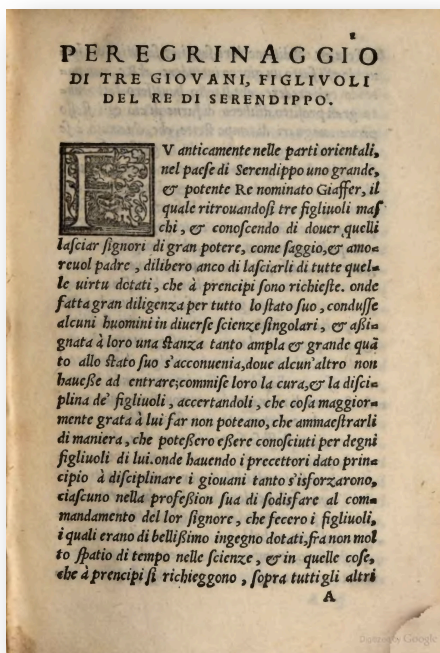 PEREGRINAGGIO
DI TRE GIOVANI, FIGLIVOLI
DEL RE DI SERENDIPPO.
FV anticamente nelle parti orientali,
nel paese di Serendippo uno grande,
& potente Re nominato Giaffer, il
quale ritrouandosi tre figliuoli mas
chi, & conoscendo di douer quelli
lasciar signori di gran potere, come saggio, & amo=
reuol padre, dilibero anco di lasciarli di tutte quel=
le uirtu dotati, che à prencipi sono richieste. onde
fatta gran diligenza per tutto lo stato suo, condusse
alcuni huomini in diuerse scienze singolari, & aßi=
gnata à loro una stanza tanto ampla & grande quā
to allo stato suo s'acconuenia, doue alcun'altro non
haueße ad entrare; commise loro la cura, & la disci=
plina de' figliuoli, accertandoli, che cosa maggior=
mente grata à lui far non poteano, che ammaestrarli
di maniera, che poteßero eßere conosciuti per degni
figliuoli di lui. onde hauendo i precettori dato prin=
cipio à disciplinare i giouani tanto s'isforzarono,
ciascuno nella profeßion sua di sodisfare al com=
mandamento del lor signore, che fecero i figliuoli,
i quali erano di bellißimo ingegno dotati, fra non mol
to spatio di tempo nelle scienze, & in quelle cose,
che à prencipi si richieggono, sopra tutti gli altri
A
Digitized by Google